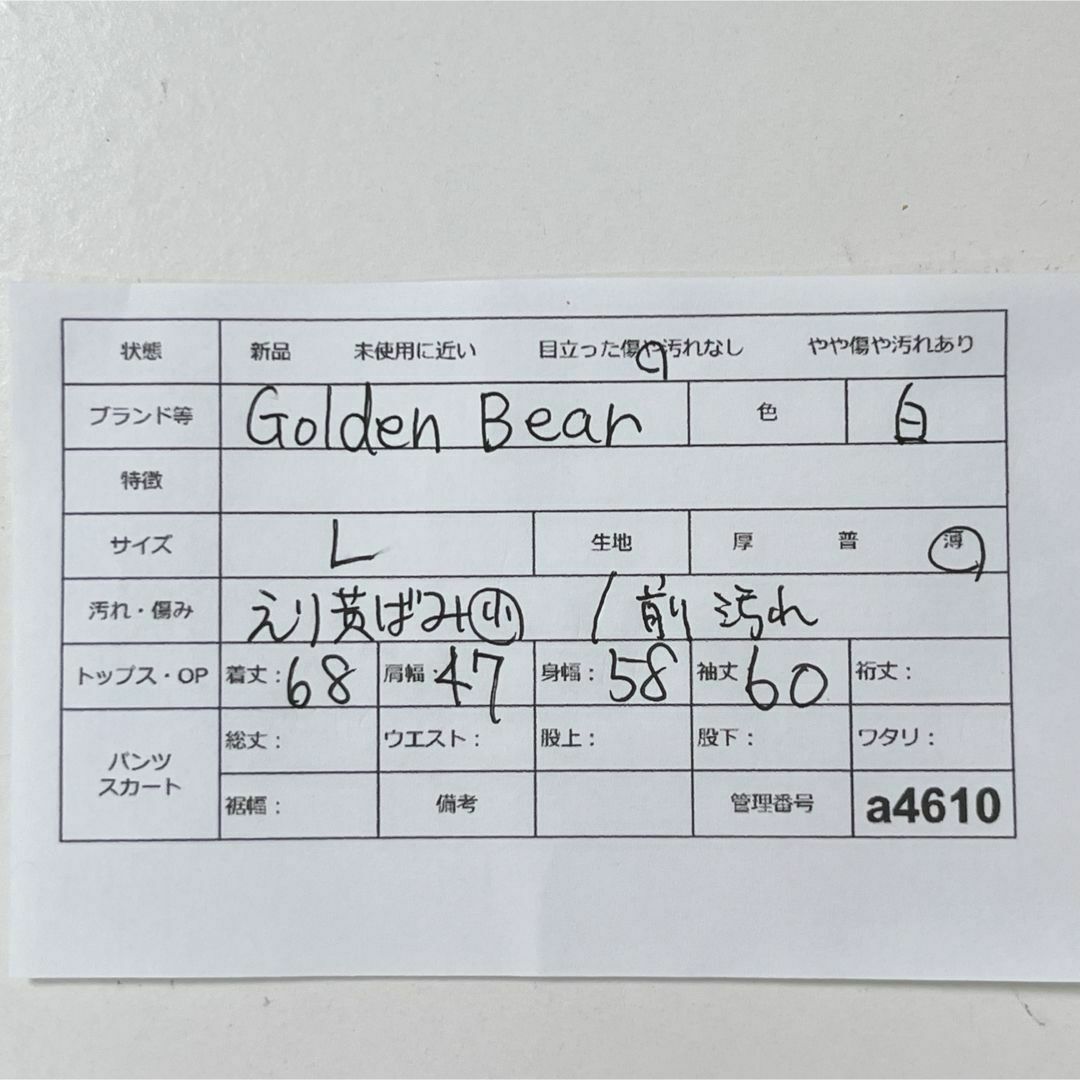 状態 新品 未使用に近い 目立った傷や汚れなし やや傷や汚れあり
ブランド等 Golden Bear 色 白
特徴
サイズ L 生地 厚 普 薄
汚れ・傷み えり黄ばみ小 / 前 汚れ
トップス・OP 着丈：68 肩幅：47 身幅：58 袖丈 60 裄丈：
パンツ スカート 総丈： ウエスト： 股上： 股下： ワタリ：
裾幅： 備考 管理番号 a4610